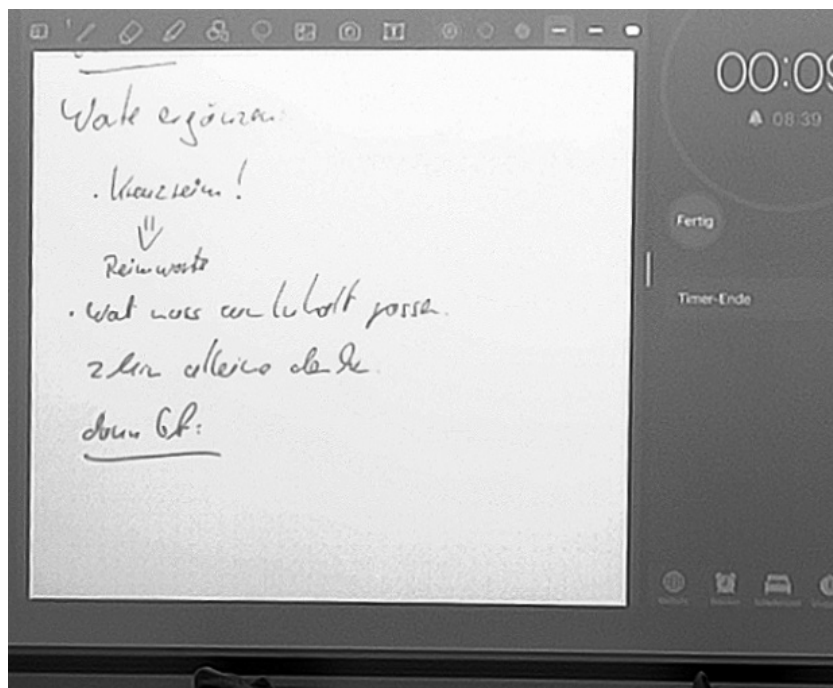 Worte ergänzen:
• Kreuzreim!
⇓
Reimworte
• Wort muss zum Inhalt passen.
2 Min alleine denken.
dann GA:
00:09
08:39
Fertig
Timer-Ende